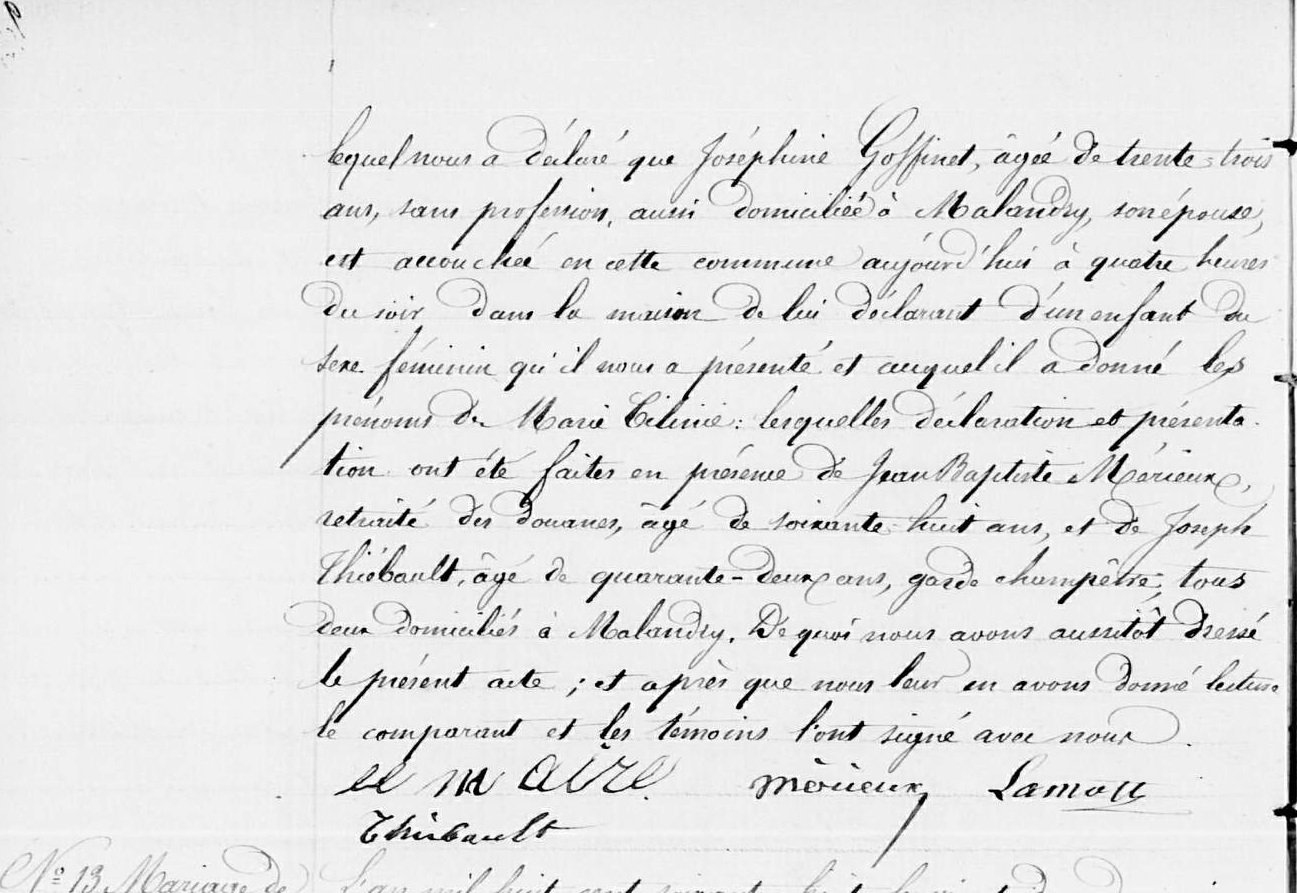 lequel nous a déclaré que Joséphine Goffinet, âgée de trente-trois
ans, sans profession, aussi domiciliée à Malandry, son épouse,
est accouchée en cette commune aujourd'hui à quatre heures
du soir dans la maison de lui déclarant d'un enfant du
sexe féminin qu'il nous a présenté et auquel il a donné les
prénoms de Marie Céline : lesquelles déclaration et présenta-
tion ont été faites en présence de Jean Baptiste Mérieux,
retraité des douanes, âgé de soixante-huit ans, et de Joseph
Thiébault, âgé de quarante-deux ans, garde champêtre, tous
deux domiciliés à Malandry. De quoi nous avons aussitôt dressé
le présent acte ; et après que nous leur en avons donné lecture
le comparant et les témoins l'ont signé avec nous.
le maire mérieux
Thiébault
N° 13 Mariage de L'an mil huit cent soixante huit